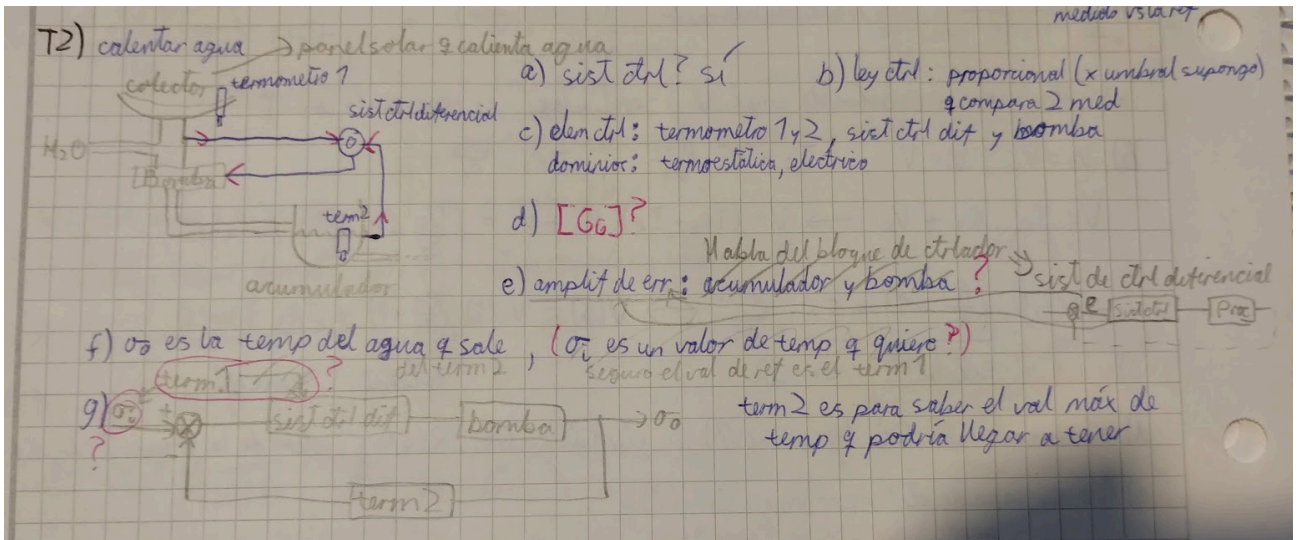 medido vs la ref
T2) calentar agua → panel solar q calienta agua
colector
termometro 1
sist ctrl diferencial
H₂O
Bomba
term2
acumulador
a) sist ctrl? sí
b) ley ctrl: proporcional (x umbral supongo)
q compara 2 med
c) elem ctrl: termometro 1 y 2, sist ctrl dif y bomba
dominios: termoestática, electrico
d) [G6]?
Habla del bloque de ctrlador → sist de ctrl diferencial
e) amplif de err: acumulador y bomba ?
e sist ctrl Proc
f) σo es la temp del agua q sale, (σi es un valor de temp q quiero?)
del term 2 seguro el val de ref es el term 1
term 1 ?
g) σi + sist ctrl dif bomba → σo
? -
term 2
term 2 es para saber el val máx de
temp q podría llegar a tener